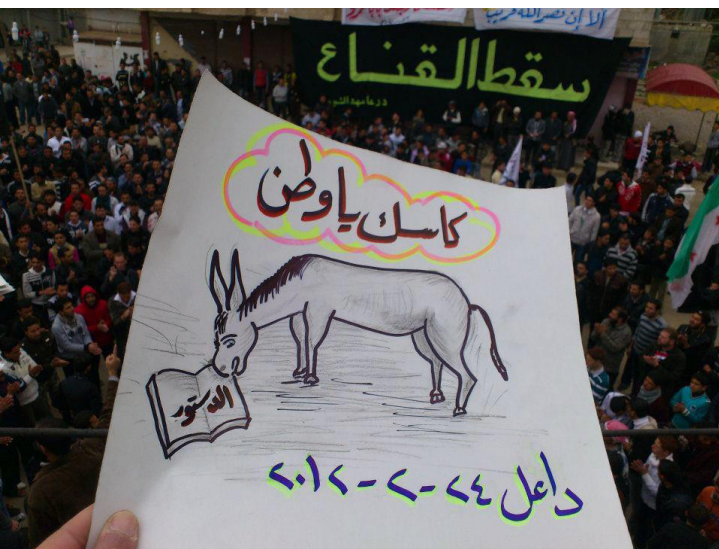 ألا إن نصر الله قريب
سقط القناع
درعا مهد الثورة
كاسك يا وطن
الدستور
داعل ٢٤-٢-٢٠١٢